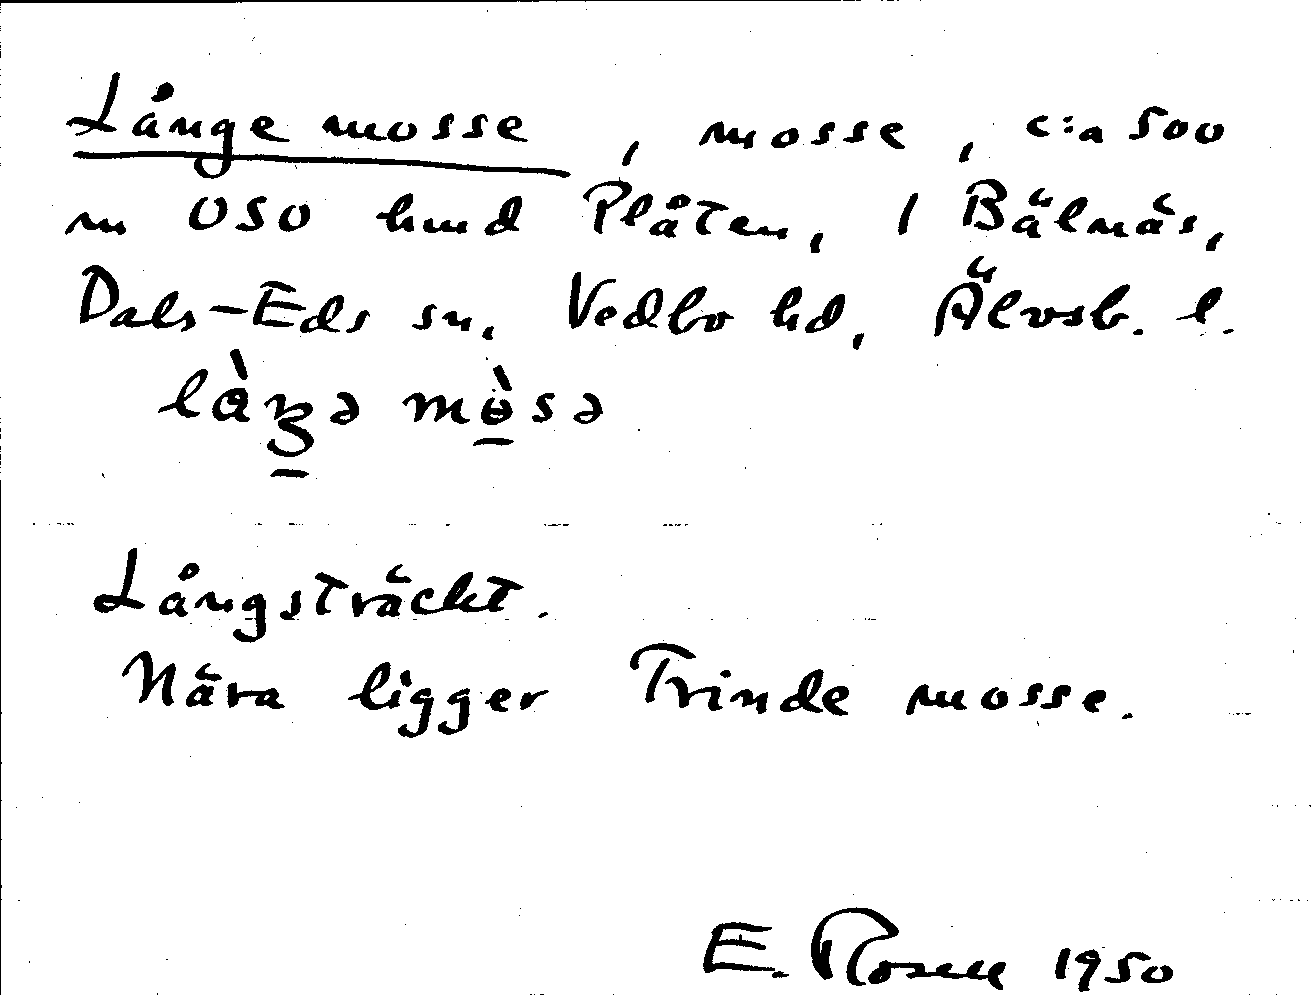 Långe mosse, mosse, c:a 500
m OSO hmd Plåten, 1 Bälnäs,
Dals-Eds sn, Vedbo hd, Älvsb. l.
Långsträckt.
Nära ligger Trinde mosse.
E. Rosen 1950